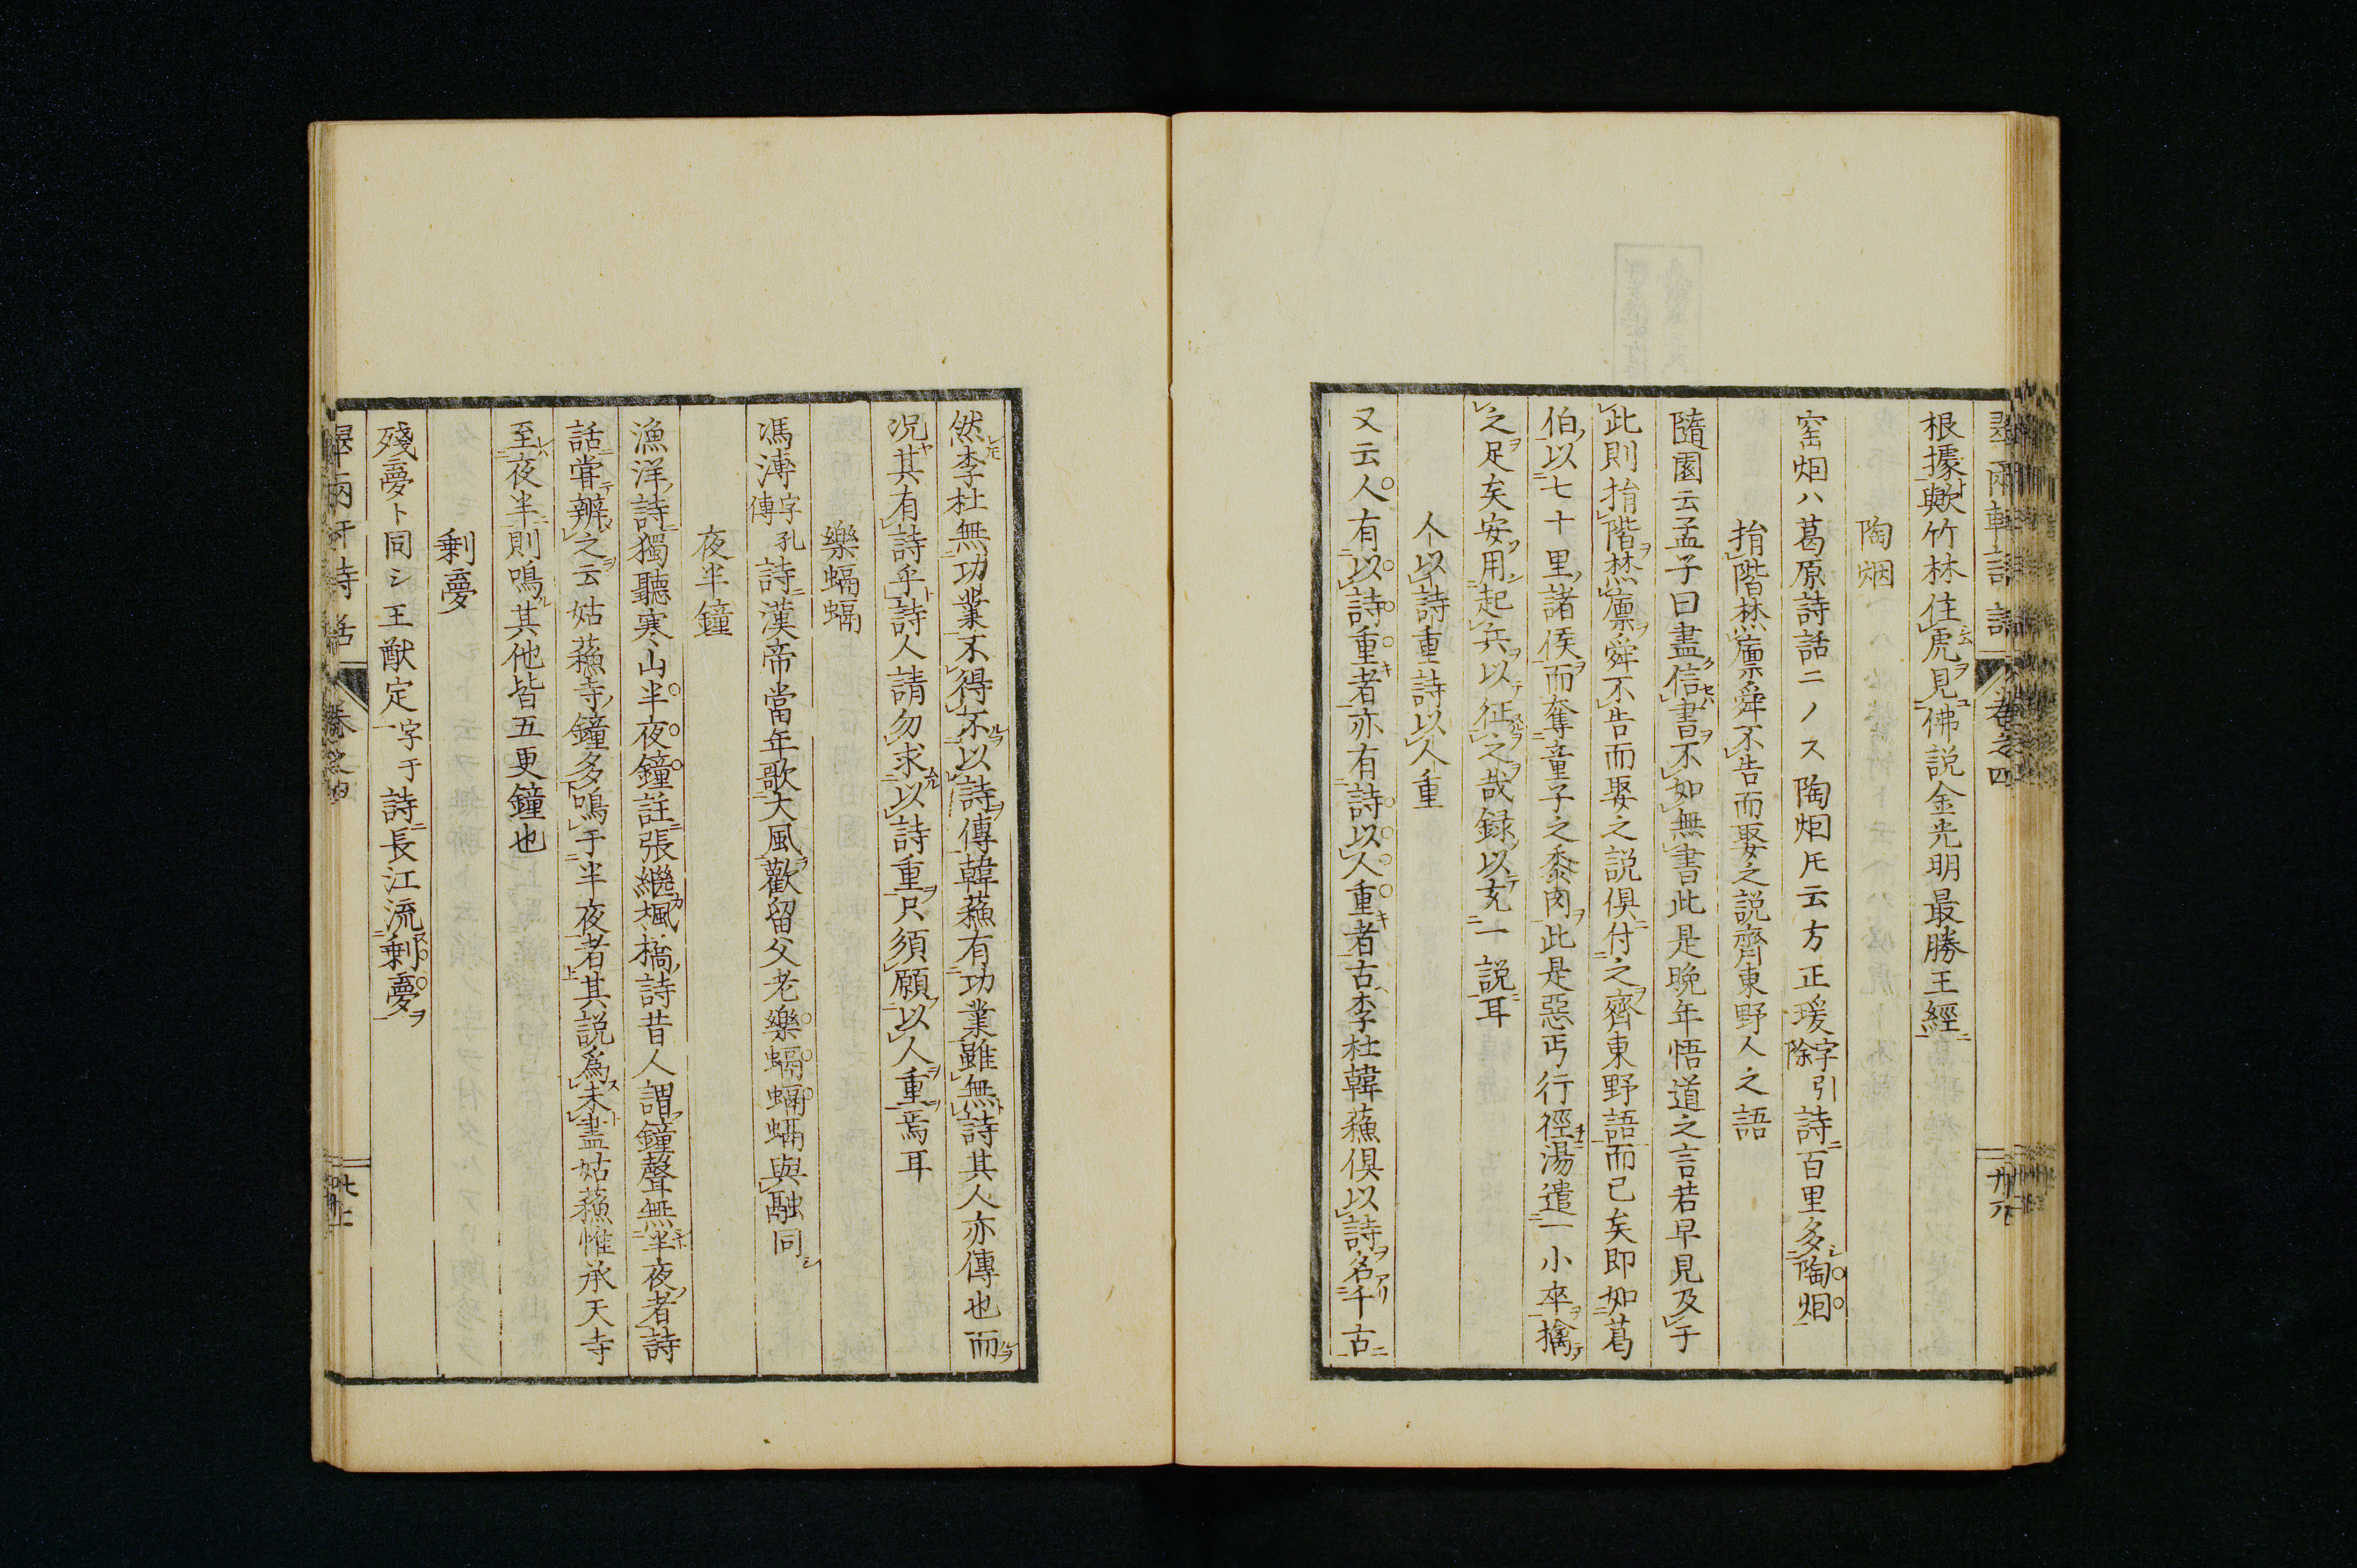 根據歟竹林住虎見佛説金光明最勝王經
陶烟
窑烟ハ葛原詩話ニノス陶烟𪜈云方正瑗字引除詩百里多陶烟
捐階焚廩舜不告而娶之説齊東野人之語
隨園云孟子曰盡信書不如無書此是晩年悟道之言若早見及于
此則捐階焚廩舜不告而娶之説倶付之齊東野語而已矣即如葛
伯以七十里諸侯而奪童子之黍肉此是惡丐行徑湯遣一小卒擒
之足矣安用起兵以征之哉録以充一説耳
人以詩重詩以人重
又云人有以詩重者亦有詩以人重者古李杜韓蘓倶以詩名千古
然李杜無功業不得不以詩傳韓蘓有功業雖無詩其人亦傳也而
况其有詩乎詩人請勿求以詩重只須願以人重焉耳
樂蝹蝹
馮溥字孔傳詩漢帝當年歌大風歡留父老樂蝹蝹蝹與融同
夜半鐘
漁洋詩獨聽寒山半夜鐘註張繼楓橋詩昔人謂鐘聲無半夜者詩
話甞辨之云姑蘓寺鐘多鳴于半夜者其説爲未盡姑蘓惟承天寺
至夜半則鳴其他皆五更鐘也
剩夢
殘夢ト同シ王猷定字于一詩長江流剩夢
卷之四